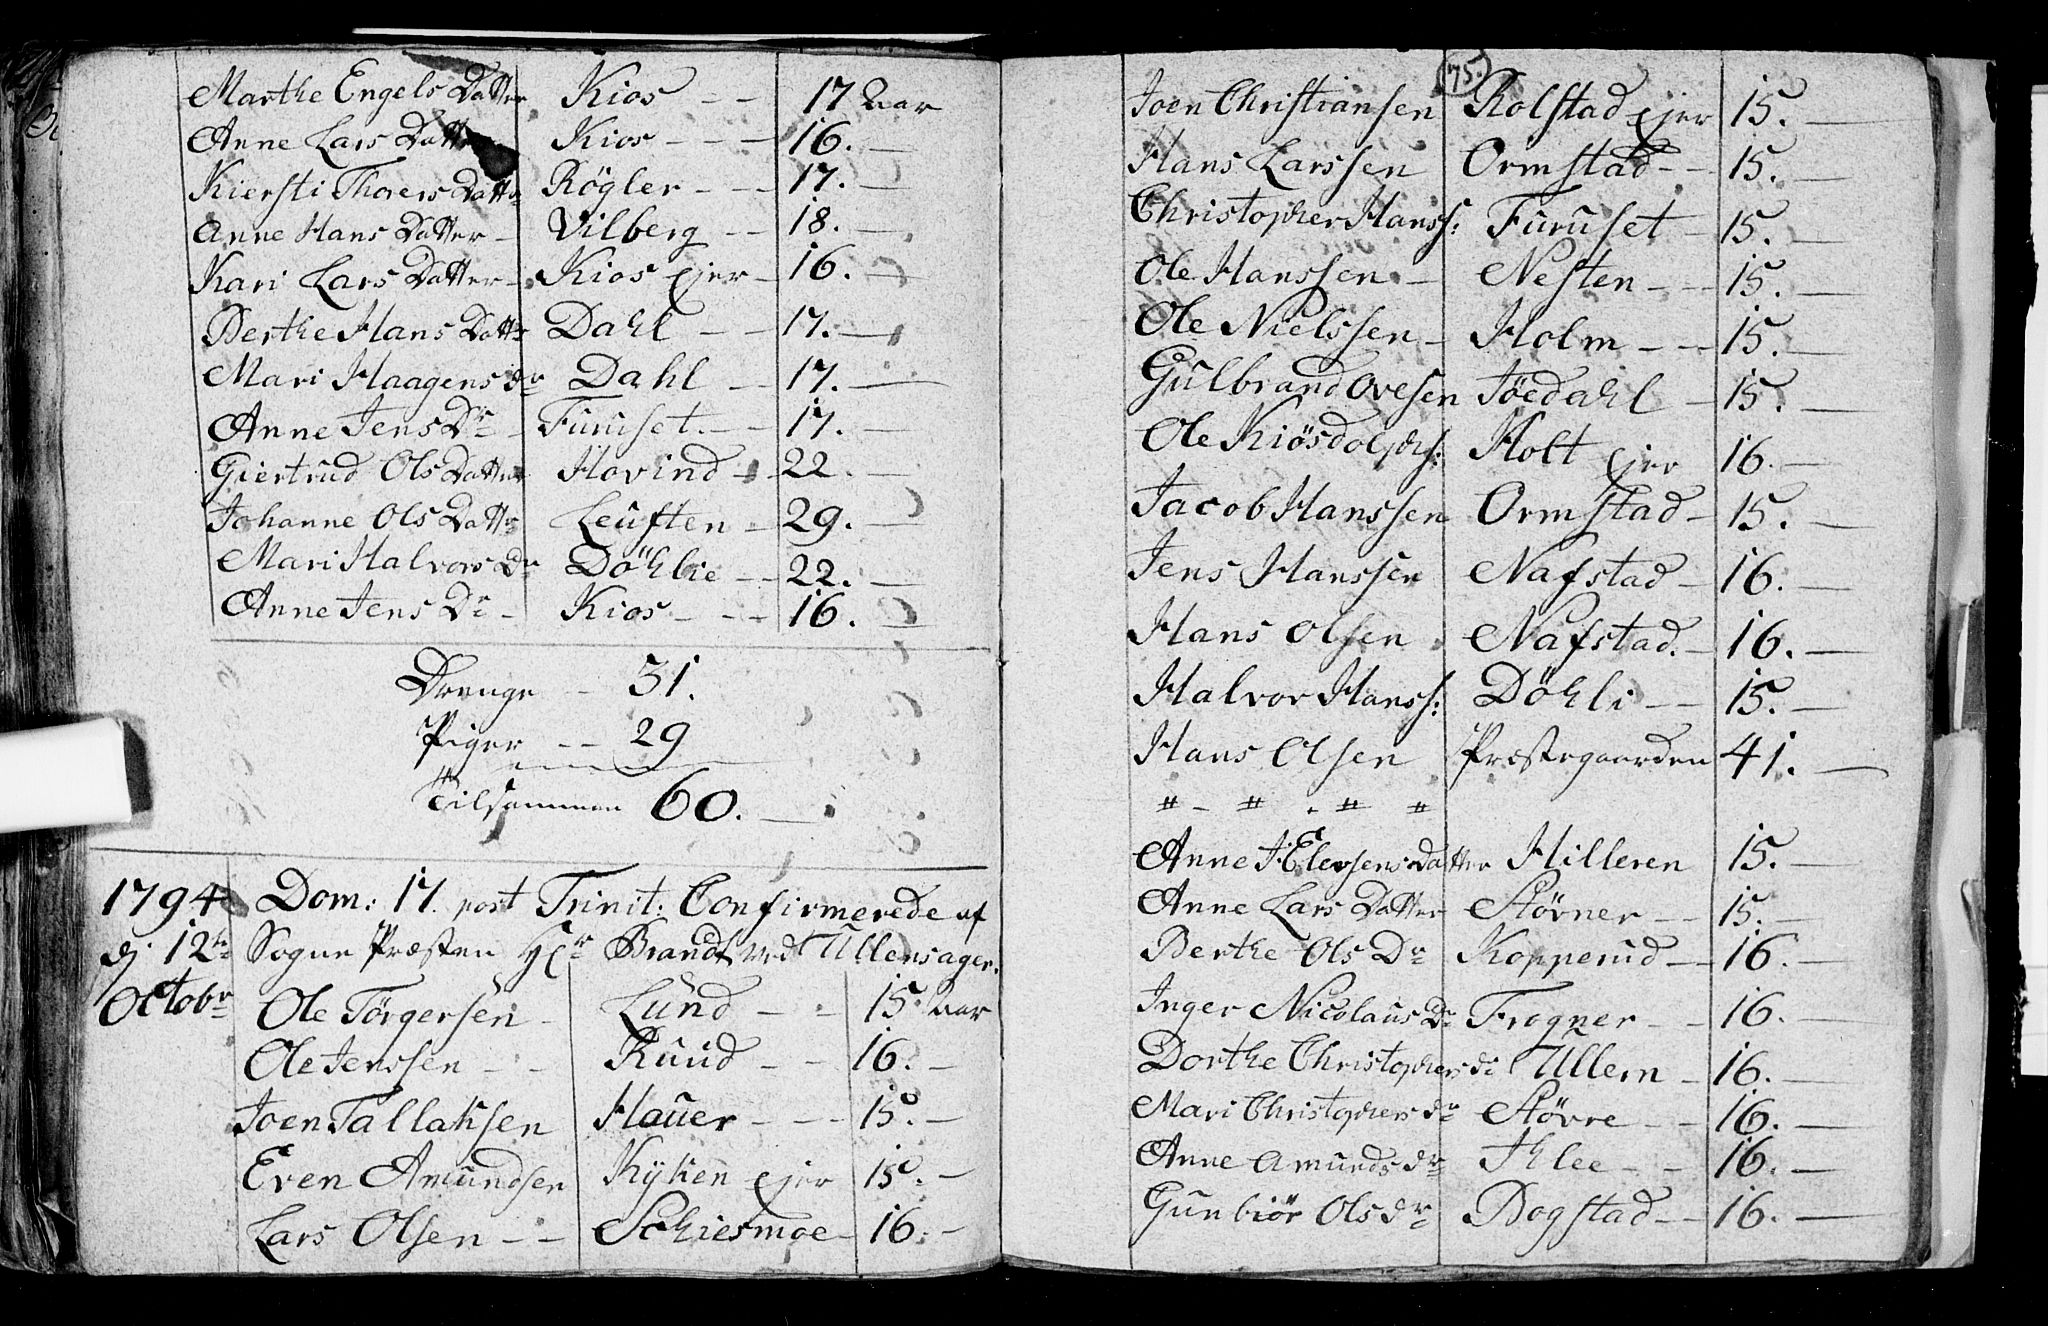 Marthe Engels Datter Kios - - 17 Aar
Anne Lars Datter Kios - - - 16. -
Kiersti Thorers Datter Røgler - - - 17. -
Anne Hans Datter - Vilberg - - 18. -
Kari Lars Datter - Kios Ejer - 16. -
Berthe Hans Datter Dahl - - 17. -
Mari Haagens dr Dahl - 17. -
Anne Jens Dr - Furuset. - - 17. -
Giertrud Ols Datter Hovind - 22. -
Johanne Ols Datter Leuften - 29. -
Mari Halvors Dr Döhlie - - 22. -
Anne Jens Dr - Kios - - - 16. -
Drenge - 31.
Piger - - 29
Tilsammen 60. -
1794 Dom: 17. post Trinit: Confirmerede af
dj 12te Sogne Præsten Hr Brandt ved Ullensager.
Octobr Ole Törgersen - Lund - - 15. Aar
Ole Jenssen - - Ruud - - 16. -
Joen Tallaksen Hauer - - - 15. -
Even Amundsen Kÿken Ejer - 15. -
Lars Olsen - - Schiesmoe - 16. -
75.
Joen Christiansen Rolstad Ejer 15. -
Hans Larssen Ormstad - - 15. -
Christopher Hanss: Furuset - 15. -
Ole Hanssen - Nesten - - - 15. -
Ole Nielssen - Holm - - - 15. -
Gulbrand Ovesen Jöedahl - 15. -
Ole Kiösdolphs: Holt Ejer 16. -
Jacob Hanssen Ormstad - 15. -
Jens Hanssen Nafstad - 16. -
Hans Olsen Nafstad. - 16. -
Halvor Hanss: Döhli - - 15. -
Hans Olsen Præstegaarden 41. -
" - " - " "
Anne Elersens Datter Hilleren 15. -
Anne Lars Datter Støvner - - 15. -
Berthe Ols Dr Kopperud - - 16. -
Inger Nicolaus Dr Frogner - - 16. -
Dorthe Christophers dr Ullern - 16. -
Mari Christophers dr Støvre - - 16. -
Anne Amunds dr Thlee - - 16. -
Gunbiör Ols dr Bogstad - - 16. -